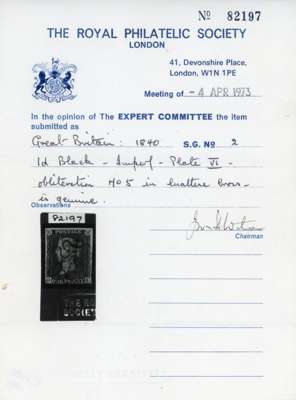 Nº 82197
THE ROYAL PHILATELIC SOCIETY
LONDON
41, Devonshire Place,
London, W1N 1PE
Meeting of -4 APR 1973
In the opinion of The EXPERT COMMITTEE the item
submitted as
Great Britain: 1840 S.G. Nº 2
1d Black - Imperf - Plate VI -
obliteration No 5 in maltese Cross -
is genuine.
Observations
Chairman
82197
POSTAGE
THE RO
SOCIET